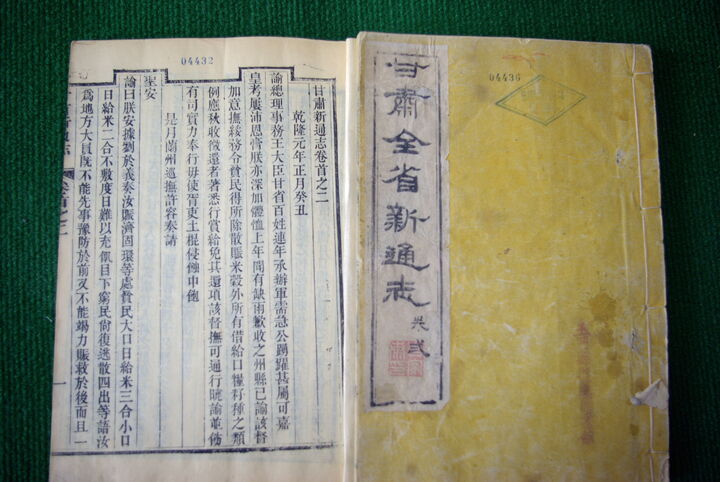 04432
甘肅新通志卷首之二
乾隆元年正月癸丑
諭總理事務王大臣甘省百姓連年承辦軍需急公踴躍甚屬可嘉
皇考屢沛恩膏朕亦深加體恤上年間有缺雨歉收之州縣已諭該督
加意撫綏務令貧民得所除散賑米穀外所有借給口糧籽種之類
例應秋收徵還者著悉行賞給免其還項該督撫可通行曉諭並飭
有司實力奉行毋使胥吏土棍侵蝕中飽
是月蘭州巡撫許容奏請
聖安
諭曰朕安據劉於義奏汝賑濟固環等處貧民大口日給米三合小口
日給米二合不敷度日難以充飢目下窮民尚復逃散四出等語汝
為地方大員既不能先事豫防於前又不能竭力賑救於後而且一
一
04436
甘肅全省新通志